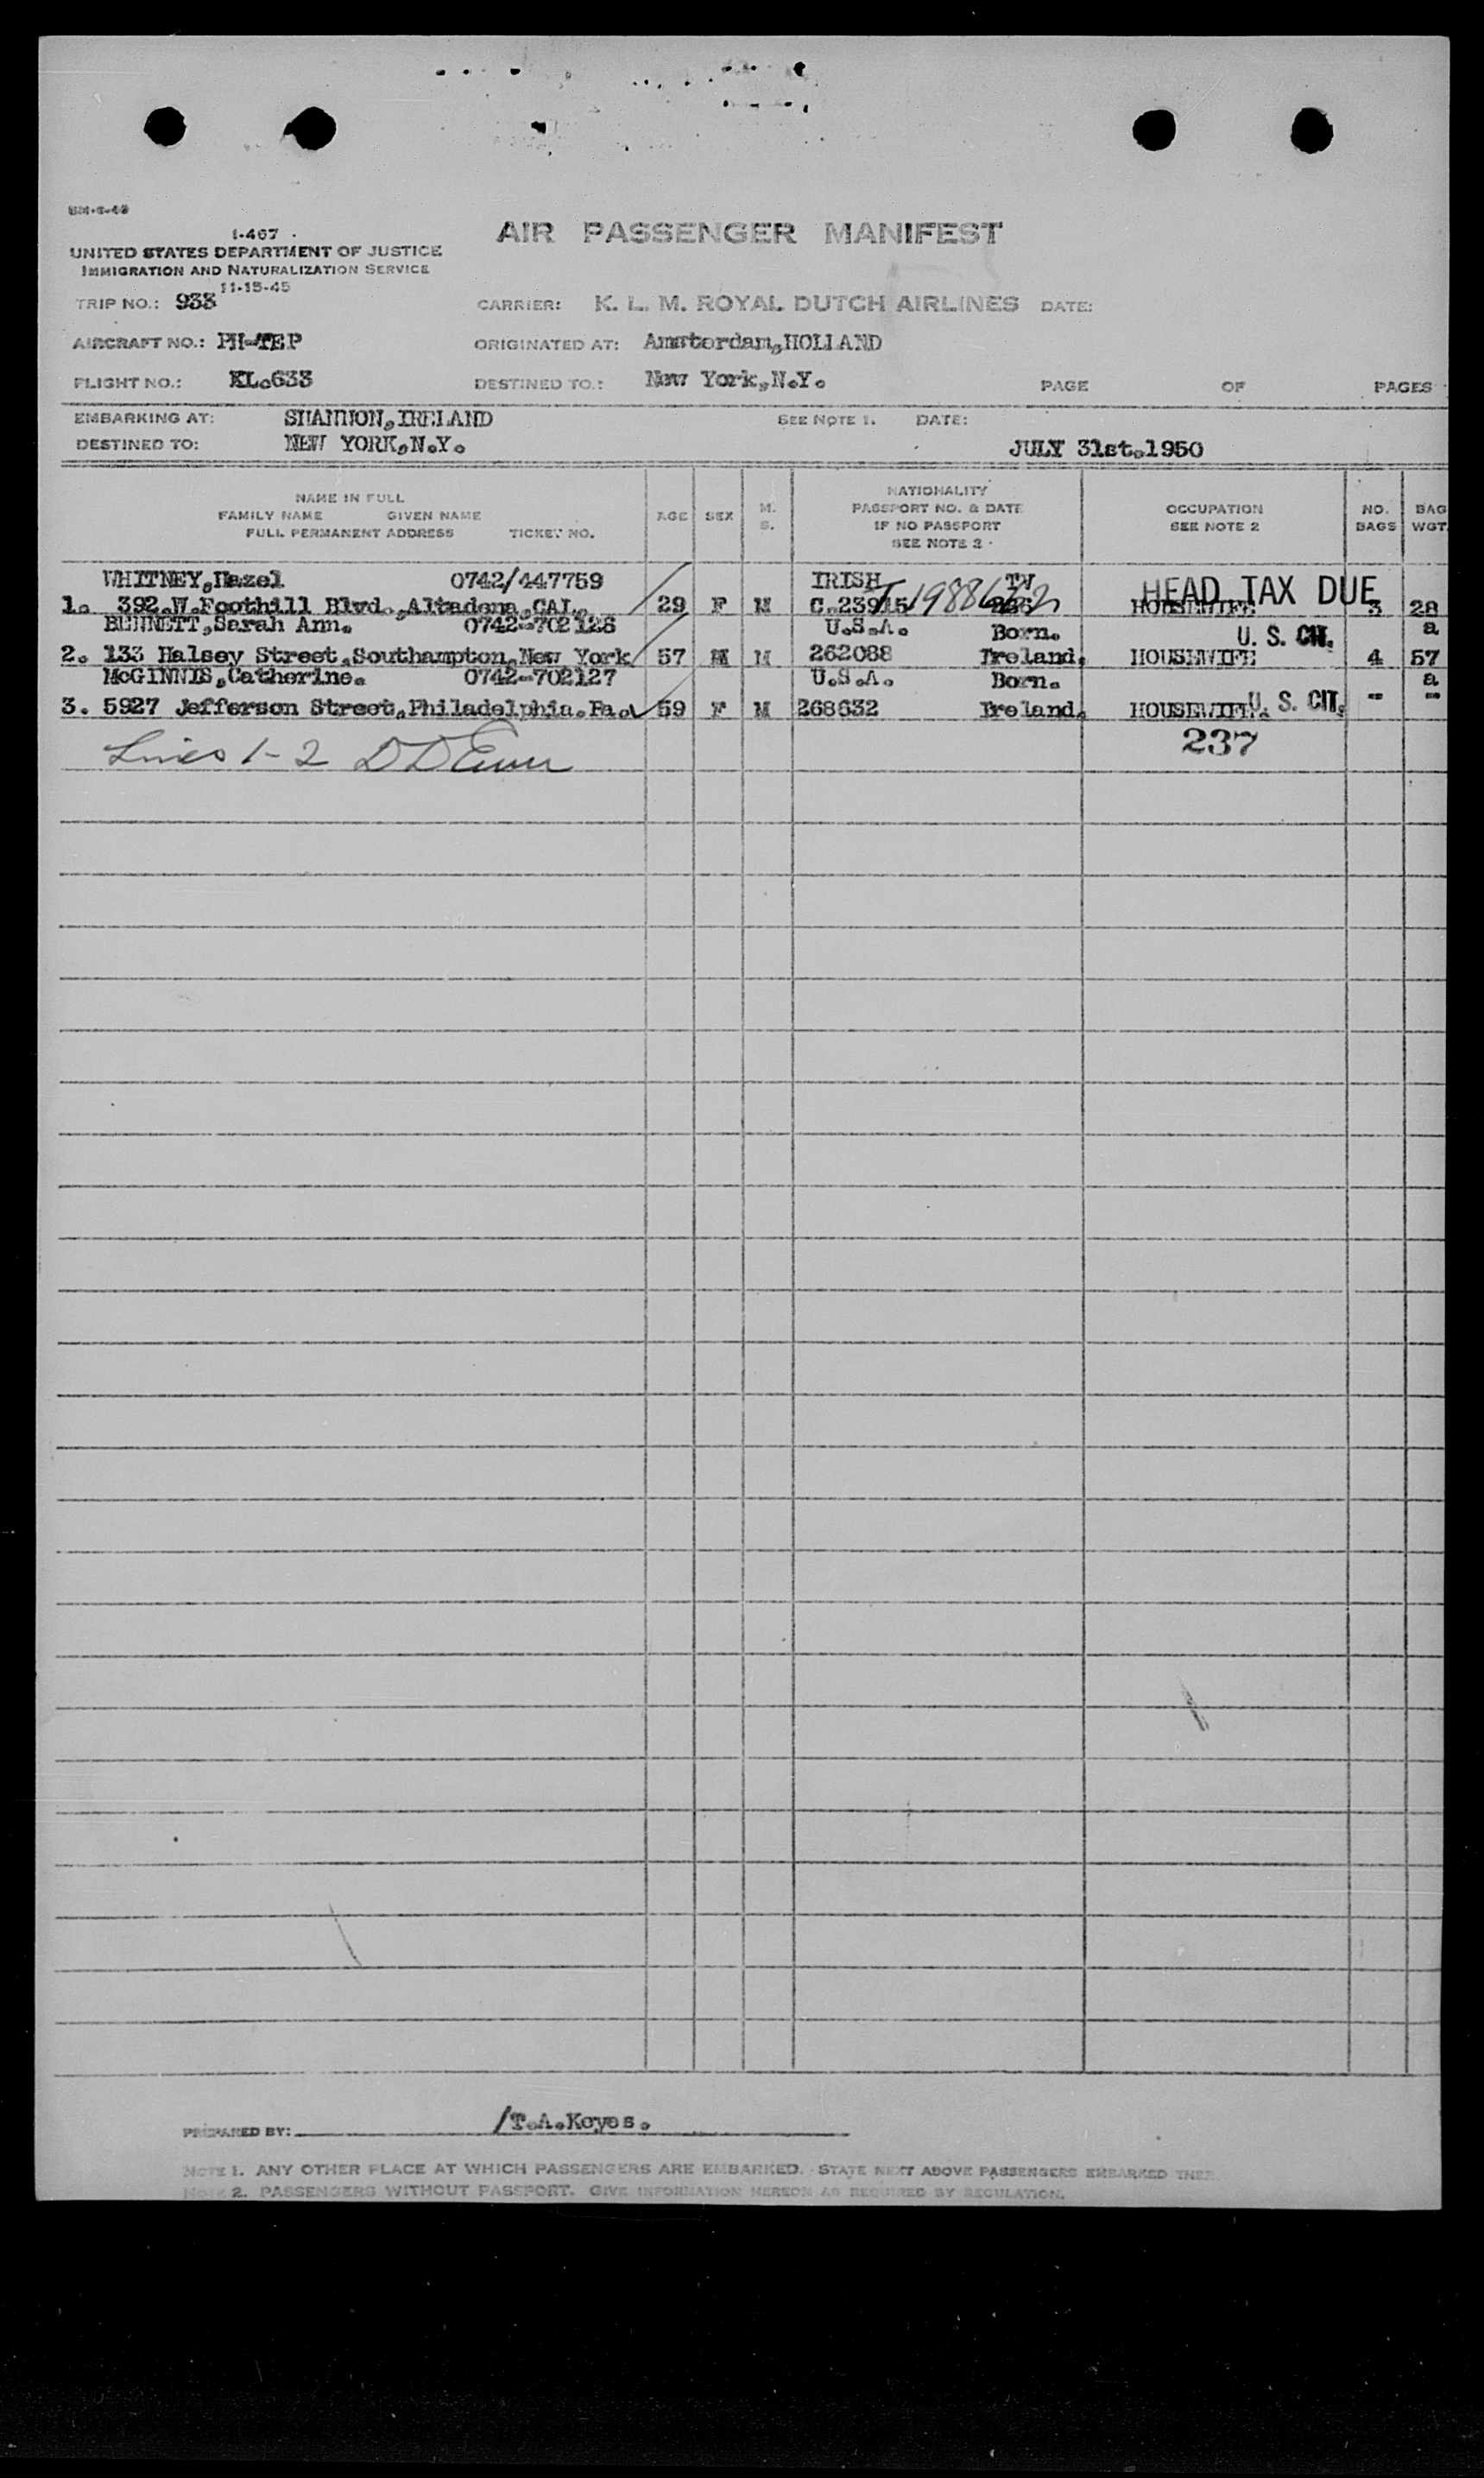 I-467
AIR PASSENGER MANIFEST
UNITED STATES DEPARTMENT OF JUSTICE
IMMIGRATION AND NATURALIZATION SERVICE
11-15-45
TRIP NO.: 933 CARRIER: K. L. M. ROYAL DUTCH AIRLINES DATE:
AIRCRAFT NO.: PH-TEP ORIGINATED AT: Amsterdam,HOLLAND
FLIGHT NO.: KL.633 DESTINED TO.: New York,N.Y. PAGE OF PAGES
EMBARKING AT: SHANNON,IRELAND SEE NOTE 1. DATE:
DESTINED TO: NEW YORK,N.Y. JULY 31st.1950
NAME IN FULL
FAMILY NAME GIVEN NAME
FULL PERMANENT ADDRESS TICKET NO.
AGE SEX M. S.
NATIONALITY
PASSPORT NO. & DATE
IF NO PASSPORT
SEE NOTE 2
OCCUPATION
SEE NOTE 2
NO. BAGS
BAG WGT.
WHITNEY,Hazel 0742/447759 IRISH HEAD TAX DUE
1. 392.W.Foothill Blvd.,Altadena,CAL. 29 F M C.23915 HOUSEWIFE 3 28
BENNETT,Sarah Ann. 0742-702126 U.S.A. Born. U. S. CIT. a
2. 133 Halsey Street,Southampton,New York 57 M 262088 Ireland. HOUSEWIFE 4 57
McGINNIS,Catherine. 0742-702127 U.S.A. Born. a
3. 5927 Jefferson Street,Philadelphia.Pa. 59 F M 268632 Ireland. HOUSEWIFE. U. S. CIT. - -
Lines 1-2 237
PREPARED BY: /T.A.Keyes.
NOTE 1. ANY OTHER PLACE AT WHICH PASSENGERS ARE EMBARKED. STATE NEXT ABOVE PASSENGERS EMBARKED
NOTE 2. PASSENGERS WITHOUT PASSPORT. GIVE INFORMATION HEREON AS REQUIRED BY REGULATION.